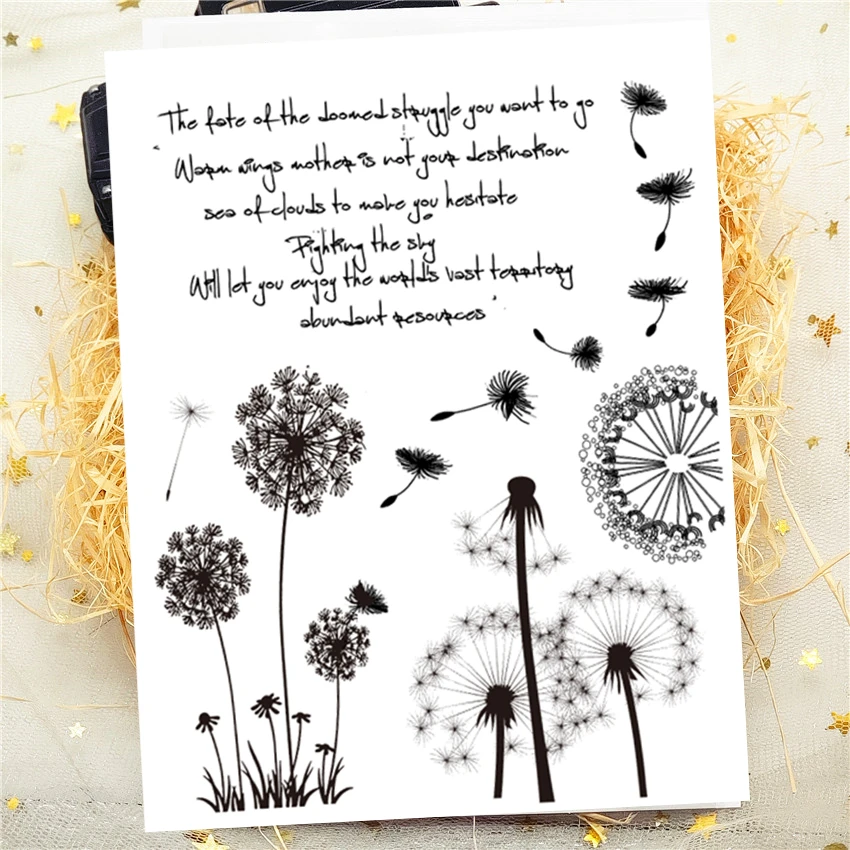 The fate of the doomed struggle you want to go
Warm wings mother is not your destination
sea of clouds to make you hesitate
Fighting the sky
Will let you enjoy the world's vast territory
abundant resources